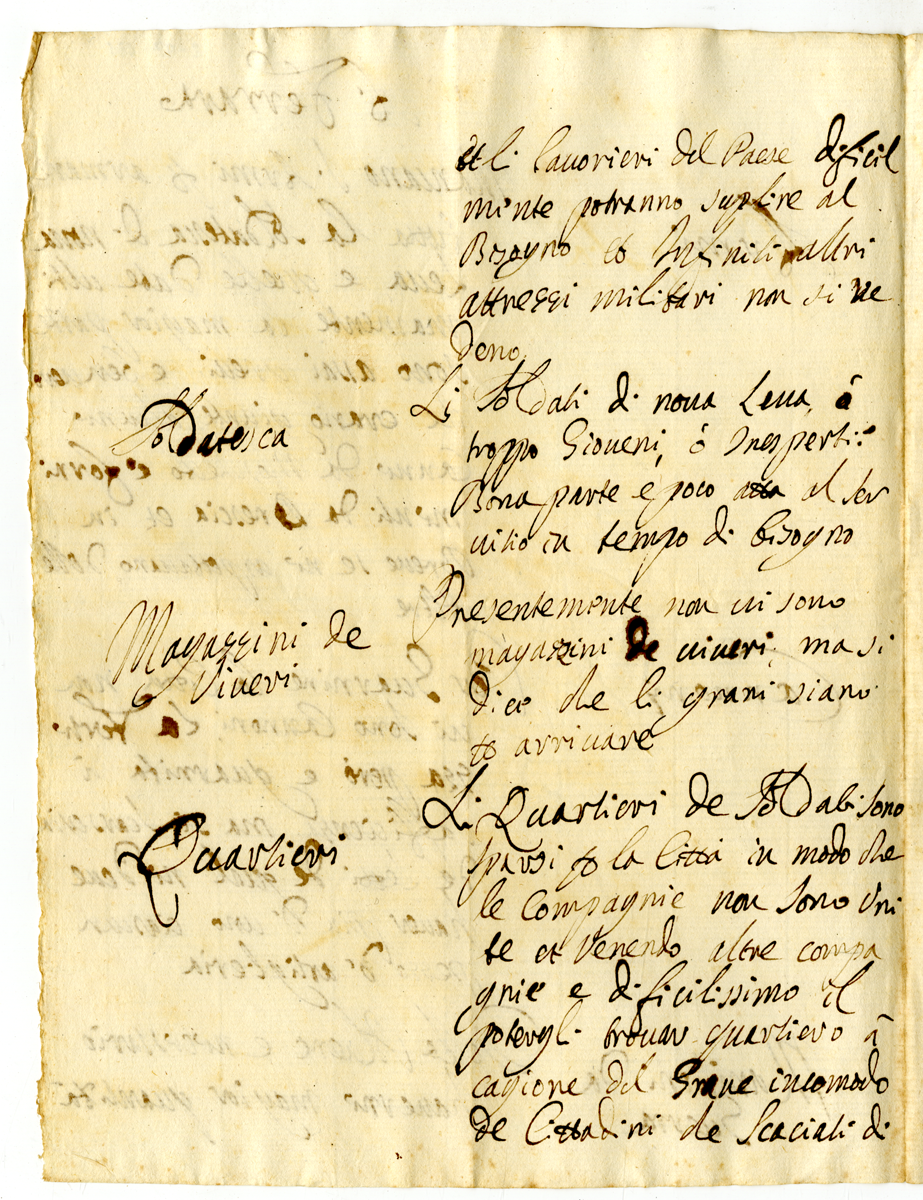 et li lauorieri del Paese dificil
mente potranno suplire al
Bisogno et Infiniti altri
attrezzi militari non si ue
deno
Soldatesca
Li Soldati di noua Leua, ó
troppo Gioueni, ó Inesperti:
Bona parte e poco atta al ser
uitio in tempo di bisogno
Magazzini de
Viueri
Presentemente non ui sono
magazzini de uiueri, ma si
dice che li grani siano
arriuare
Quartieri
Li Quartieri de Soldati sono
sparsi la Città in modo che
le Compagnie non sono Vni
te et Venendo altre compa
gnie e dificilissimo il
potergli trouar quartiero à
cagione del Graue incomodo
de Cittadini de Scaciati di